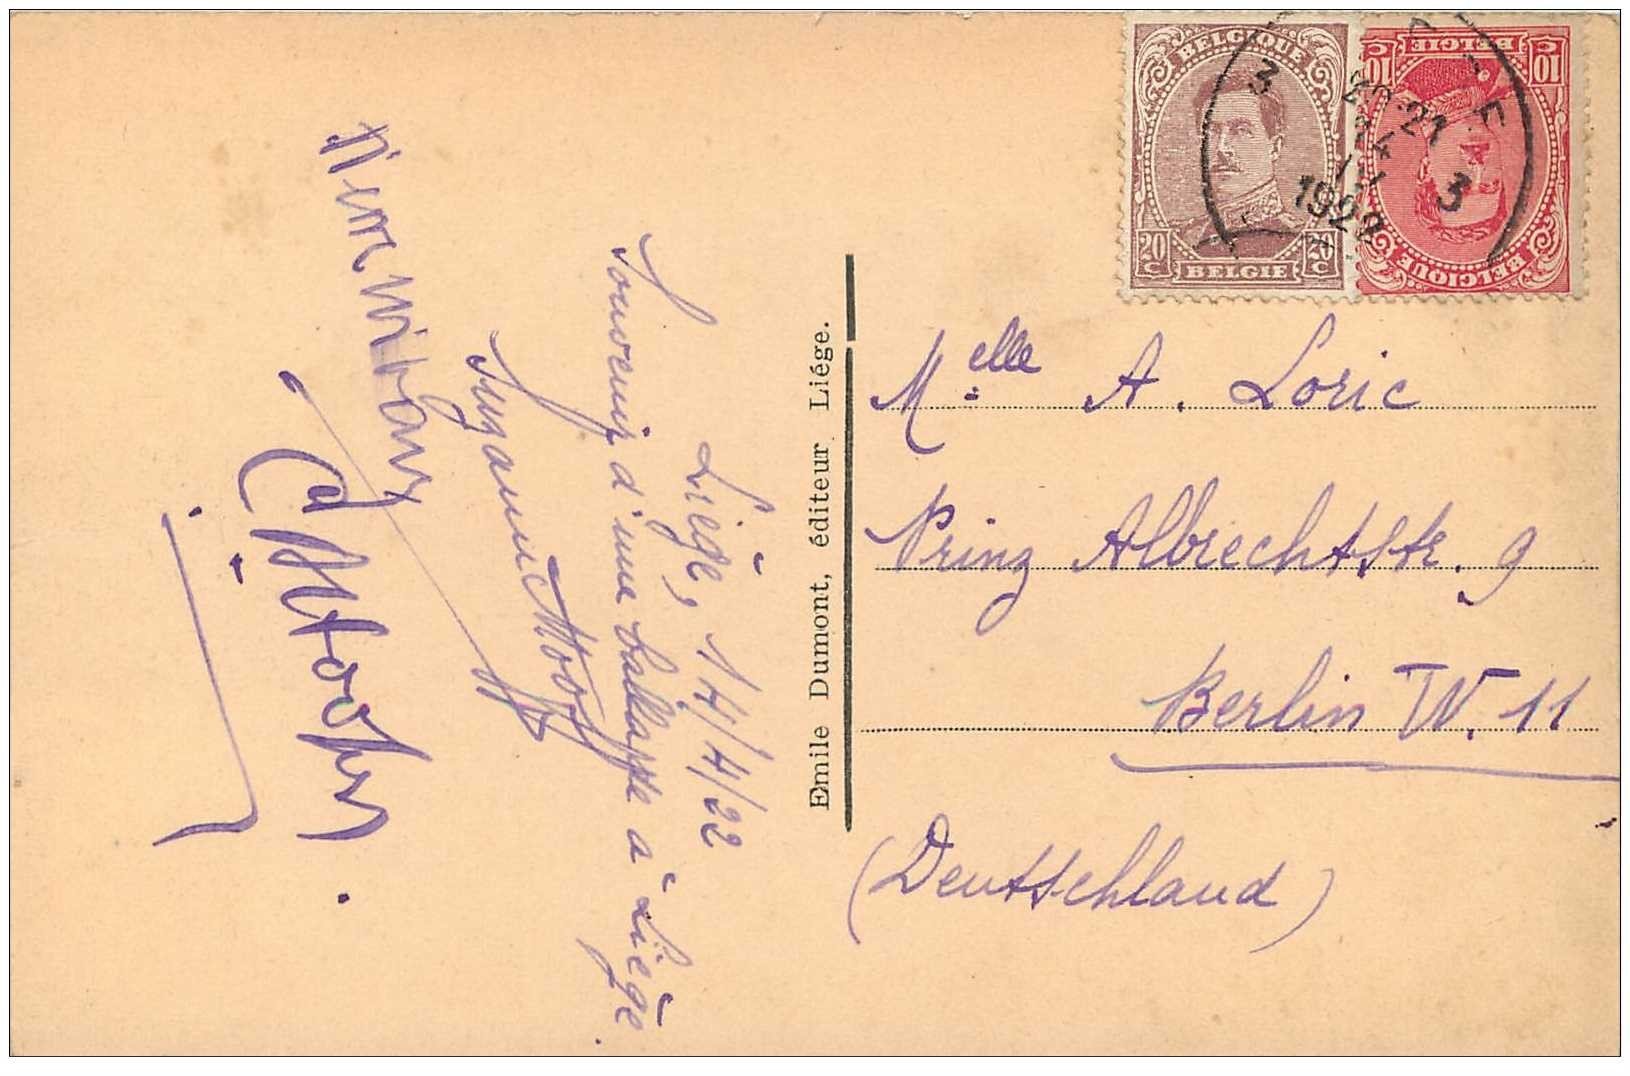 BELGIQUE
20 C
20 C
BELGIE
10 C
10 C
BELGIE
BELGIQUE
3
20-21
14
IV
1922
3
Melle A. Loric
Prinz Albrechtstr. 9
Berlin W. 11
(Deutschland)
Emile Dumont, éditeur Liége.
Liège, 14/4/22
Souvenir d'une à Liège.
Suzanne